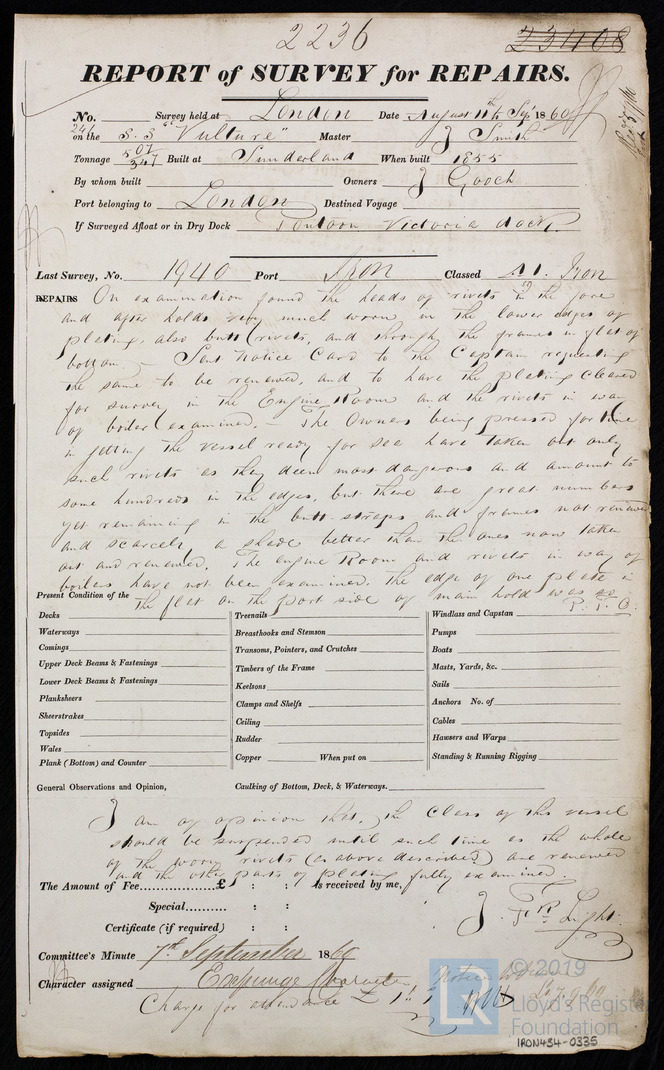 2236
23408
REPORT of SURVEY for REPAIRS.
No. Survey held at London Date August 11th 1860
246
on the S.S "Vulture" Master J Smith
Tonnage 507 347 Built at Sunderland When built 1855
By whom built Owners J Gooch
Port belonging to London Destined Voyage
If Surveyed Afloat or in Dry Dock Pontoon Victoria dock.
Last Survey, No. 1940 Port Iron Classed A1. Iron
REPAIRS On examination found the heads of rivets in the fore
and after holds very much worn in the lower edges of
plating, also butt rivets, and through the frames in flat of
bottom. – Sent Notice Card to the Captain requesting
the same to be renewed, and to have the plating cleared
for survey in the Engine Room and the rivets in way
of boiler examined. – The Owners being pressed for time
in getting the vessel ready for sea have taken out only
such rivets as they deem most dangerous and amount to
some hundreds in the edges, but there are great numbers
yet remaining in the butt-straps and frames not renewed
and scarcely a shade better than the ones now taken
out and renewed. The engine Room and rivets in way of
boilers have not been examined. the edge of one plate in
the flat on the port side of main hold was so
P.T.O.
Present Condition of the
Decks
Waterways
Comings
Upper Deck Beams & Fastenings
Lower Deck Beams & Fastenings
Planksheers
Sheerstrakes
Topsides
Wales
Plank (Bottom) and Counter
Treenails
Breasthooks and Stemson
Transoms, Pointers, and Crutches
Timbers of the Frame
Keelsons
Clamps and Shelfs
Ceiling
Rudder
Copper When put on
Windlass and Capstan
Pumps
Boats
Masts, Yards, &c.
Sails
Anchors No. of
Cables
Hawsers and Warps
Standing & Running Rigging
General Observations and Opinion, Caulking of Bottom, Deck, & Waterways.
I am of opinion that, the Class of this vessel
should be suspended until such time as the whole
of the worn rivets (as above described) are renewed
and the other parts of plating fully examined.
The Amount of Fee...............£ : : is received by me,
Special............ : :
Certificate (if required) : :
J. F. R. Light.
Committee's Minute 7th September 1860
Character assigned Expunge Character
Charge for attendance £ 1 " 1
© 2019
Lloyd's Register
Foundation
LR
IRON434-0335